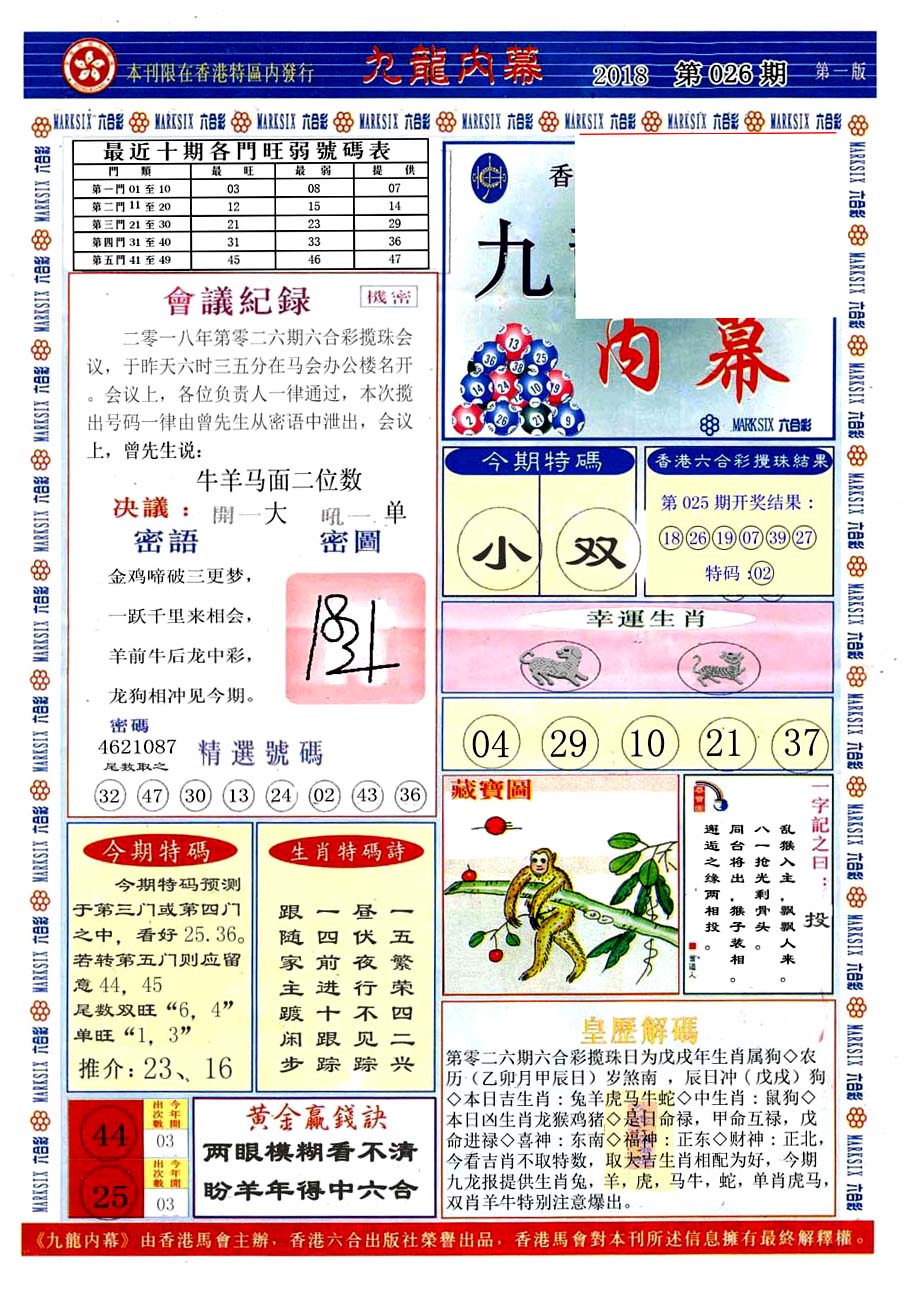 本刊限在香港特區內發行
九龍內幕
2018 第026期 第一版
MARKSIX 六合彩 MARKSIX 六合彩 MARKSIX 六合彩 MARKSIX 六合彩 MARKSIX 六合彩 MARKSIX 六合彩 MARKSIX 六合彩 MARKSIX 六合彩
最近十期各門旺弱號碼表
門類 最旺 最弱 提供
第一門01至10 03 08 07
第二門11至20 12 15 14
第三門21至30 21 23 29
第四門31至40 31 33 36
第五門41至49 45 46 47
會議紀録 機密
二零一八年第零二六期六合彩搅珠会
议，于昨天六时三五分在马会办公楼名开
。会议上，各位负责人一律通过，本次搅
出号码一律由曾先生从密语中泄出，会议
上，曾先生说：
牛羊马面二位数
决議：開一大 吼一单
密語 密圖
金鸡啼破三更梦，
一跃千里来相会，
羊前牛后龙中彩，
龙狗相冲见今期。
密碼
4621087
尾数取之
精選號碼
32 47 30 13 24 02 43 36
今期特碼
今期特码预测
于第三门或第四门
之中，看好25.36。
若转第五门则应留
意44，45
尾数双旺“6，4”
单旺“1，3”
推介：23、16
生肖特碼詩
一五繁荣四二兴
昼伏夜行不见踪
一四前进十跟踪
跟随家主踱闲步
44 今年開出次數 03
25 今年開出次數 03
黄金贏錢訣
两眼模糊看不清
盼羊年得中六合
香
九
内幕
13
36 25
38
14 24 10 19
2 26 21 9
MARKSIX 六合彩
今期特碼
小 双
香港六合彩攪珠結果
第025期开奖结果：
18 26 19 07 39 27
特码：02
幸運生肖
04 29 10 21 37
藏寶圖
一字記之曰：投
乱猴入主，飘飘人来。
八一抢光剩骨头。
同台将出，猴子装相。
邂逅之缘两相投。
曾道人
皇歷解碼
第零二六期六合彩搅珠日为戊戌年生肖属狗◇农
历（乙卯月甲辰日）岁煞南，辰日冲（戊戌）狗
◇本日吉生肖：兔羊虎马牛蛇◇中生肖：鼠狗◇
本日凶生肖龙猴鸡猪◇是日命禄，甲命互禄，戊
命进禄◇喜神：东南◇福神：正东◇财神：正北，
今看吉肖不取特数，取大吉生肖相配为好，今期
九龙报提供生肖兔，羊，虎，马牛，蛇，单肖虎马，
双肖羊牛特别注意爆出。
《九龍内幕》由香港馬會主辦，香港六合出版社榮譽出品，香港馬會對本刊所述信息擁有最終解釋權。